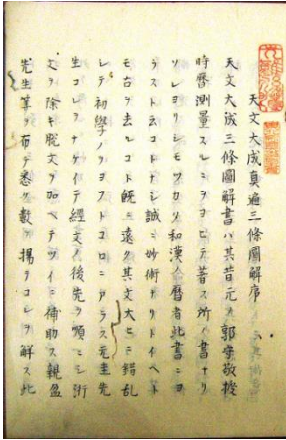 天文大成真遍三條圖解序
天文大成三條圖解書ハ其昔元ノ郭守敬授
時暦測量スルニヲヨビテ著ス所ノ書ナリ
ソレヨリシモツカツ和漢ノ暦者此書ニヨ
ラスト云コトナシ誠ニ妙術ナリトイヘト
モ古ヲ去ルコト既ニ遠ク其文大ヒニ錯乱
レテ初學ノヲヨフトコロニアラス元圭先
生コレヲナゲイテ經文ノ後先ヲ順ニシ衍
文ヲ除キ脱文ヲ加ヘテツイニ補助ス親盈
先生筆ヲ布テ悉ク數ヲ揚テコレヲ解ス此